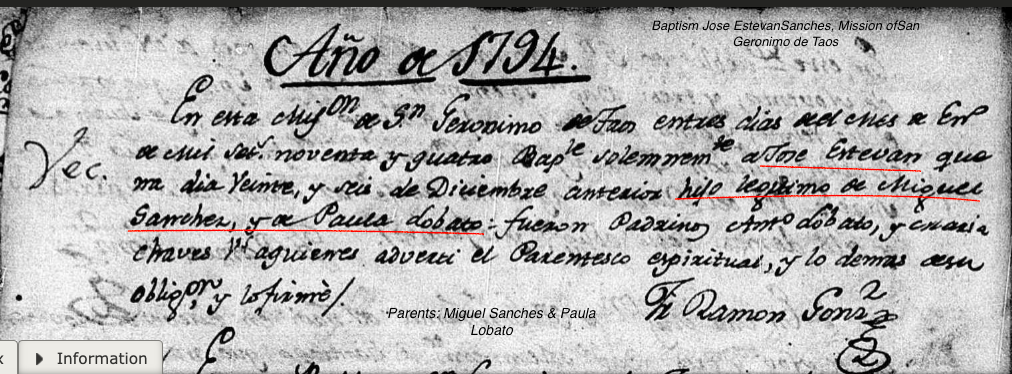 Baptism Jose EstevanSanches, Mission ofSan
Geronimo de Taos
Año de 1794.
Vec.
En esta Misⁿ de Sⁿ Geronimo de Taos entres dias del Mes de Enº
de Mil setˢ noventa y quatro Bapᵗᵉ solemnemᵗᵉ a Jose Estevan que
na dia Veinte, y seis de Diciembre anterior hijo legitimo de Miguel
Sanches, y de Paula Lobato: fueron Padrinos Antº Lobato, y Maria
chaves Vˢ aquienes adverti el Parentesco espiritual, y lo demas desu
obligᵒⁿ y lofirmè/.
Fr Ramon Gonz
Parents: Miguel Sanches & Paula
Lobato
x
Information